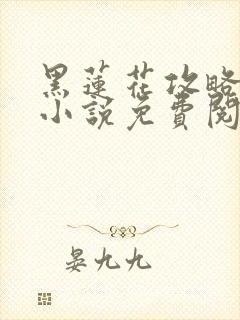 黑蓮花攻略
小說免費閱
晏九九